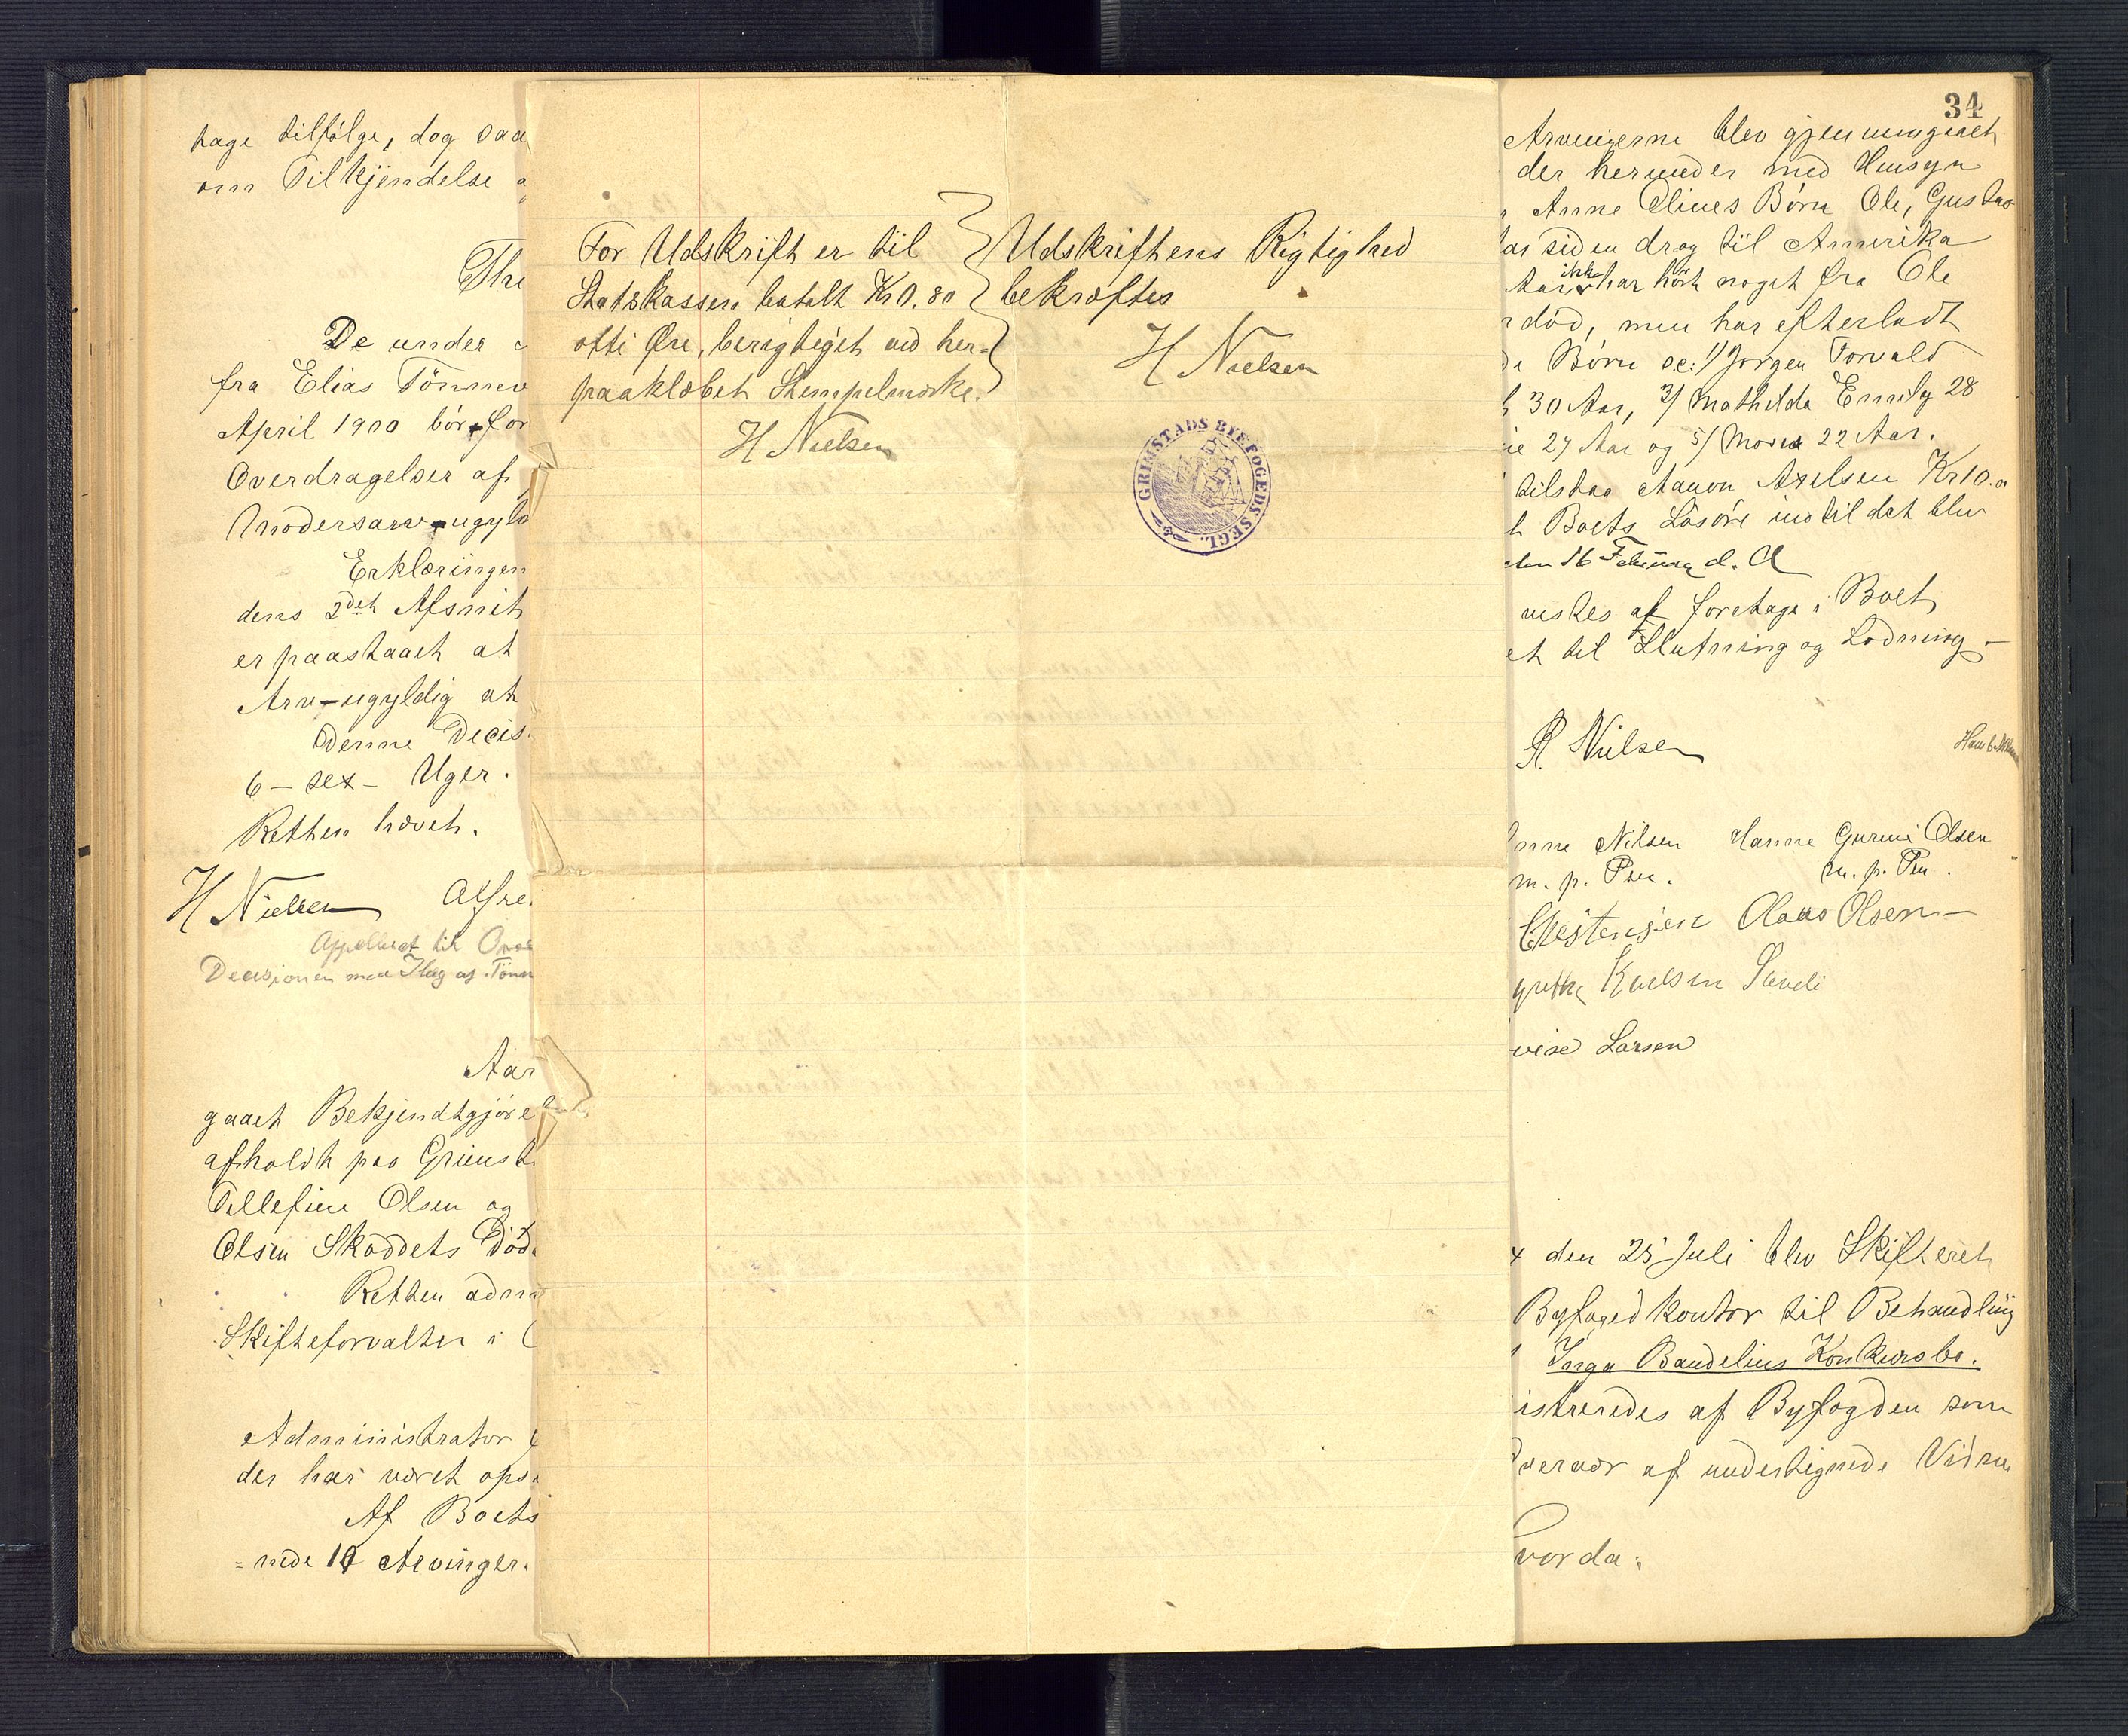 tage tilfølge, dog saa
om Tilkjendelse
Thi
De under
fra Elias Tönnes
April 1900 bör for
Overdragelser af
Modersarv ugyld
Erklæringen
dens 2det Afsnit
er paastaaet at
Arv ugyldig at
Denne Decis
6 – sex – Uger.
Retten hævet.
H Nielsen Alfre
Appelleret til Over
Decisionen med Ilæg af Tönn
Aar
gaaet Bekjendtgjöre
afholdt paa Grimst
Tellefine Olsen og
Olsen Skoddets Död
Retten adm
Skifteforvalter i
Administrator
der har været ops
Af Boets
= nede 19 Arvinger.
For Udskrift er til
Statskassen betalt Kr 0.80
otti Øre, berigtiget ved her=
paaklæbet Stempelmærke.
H Nielsen
Udskriftens Rigtighed
bekræftes
H Nielsen
GRIMSTADS BYFOGEDS SEGL.
34
Arvingerne blev gjennemgaaet
der herunder med Hensyn
Anne Elines Børn Ole, Gustav
siden drog til Amerika
Aar ikke har hört noget fra Ole
död, men har efterladt
Børn sc: 1/ Jørgen Torvald
30 Aar, 3/ Mathilda Emily 28
27 Aar og 5/ Moria 22 Aar.
tilstaa Aanon Axelsen Kr 10.
Boets Løsøre indtil det blev
den 16 Februar d. A
vistes at foretage i Boet
et til Slutning og Lodning –
R. Nielsen
Nilsen Hanne Gurine Olsen
m. p. Pen. m. p. Pen.
Christensen Olaus Olsen –
grethe Karlsen
vise Larsen
den 25 Juli blev Skifteret
Byfogedkontor til Behandling
Inga Baudelius Konkursbo.
istreredes af Byfogden som
vervær af undertegnede Vidne
vorda: